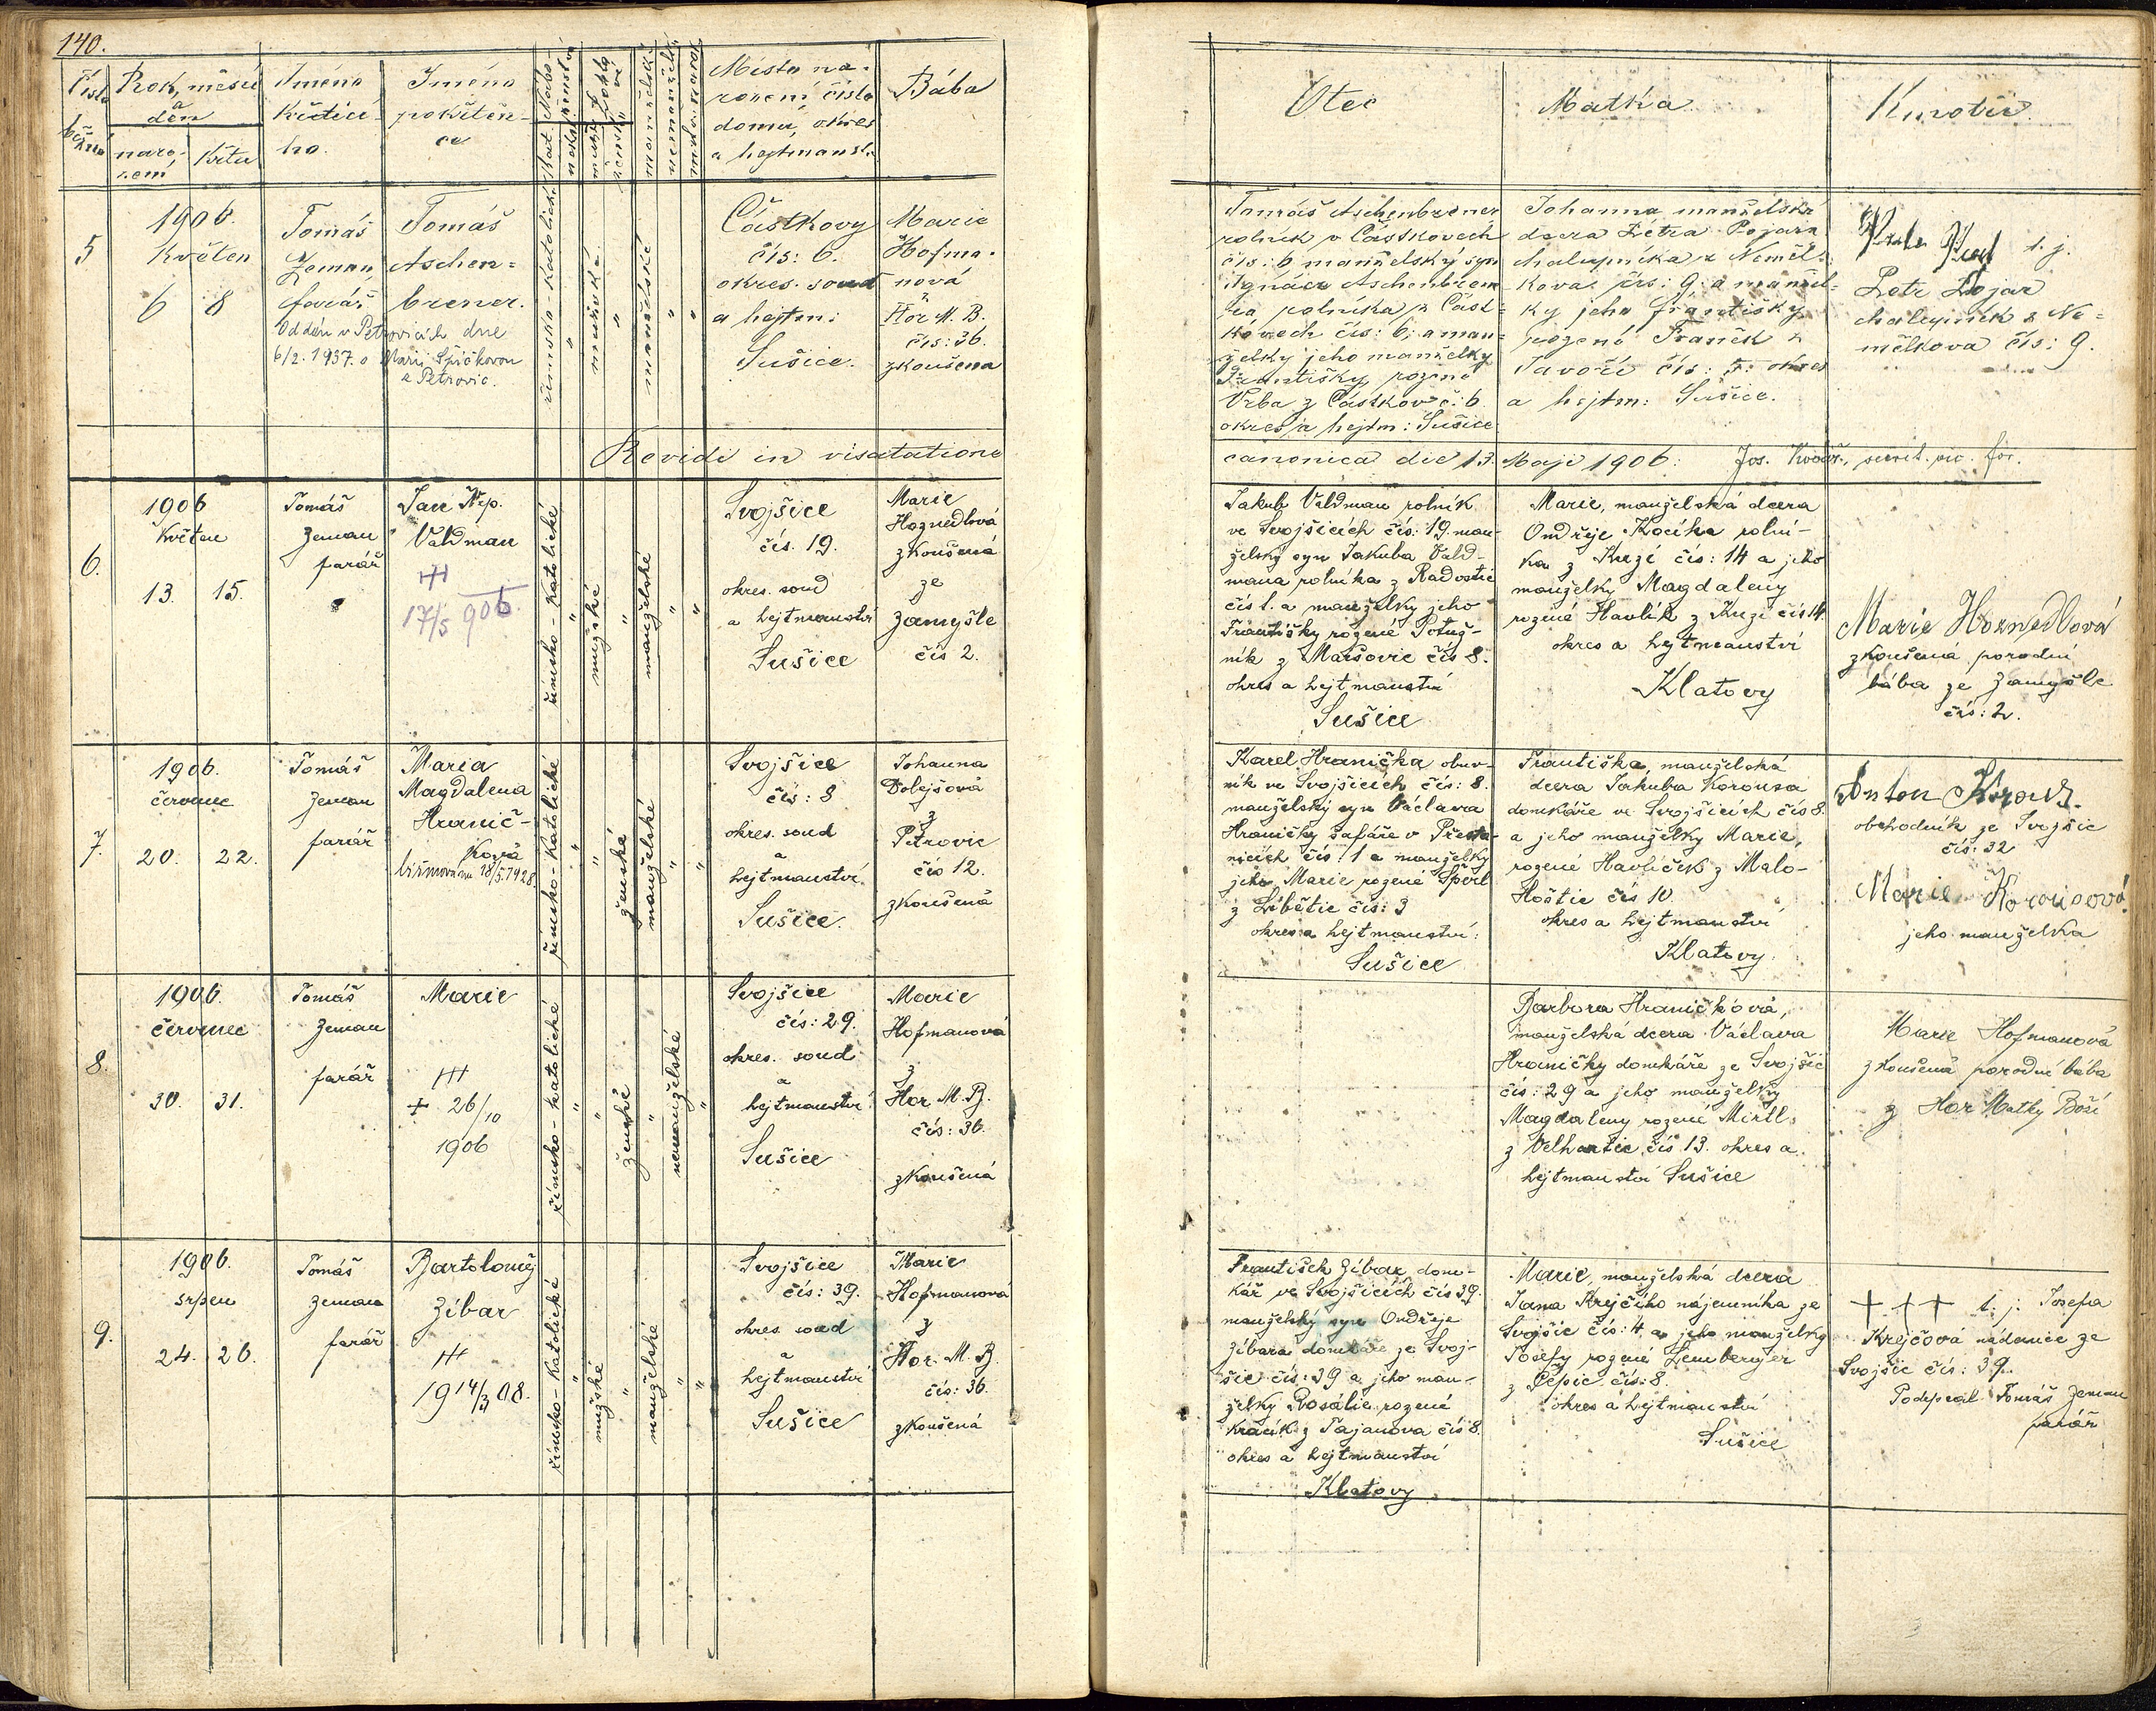 140.
Číslo běžné
Rok, měsíc a den
narození
křtu
Jméno křtícího.
Jméno pokřtěnce
Místo narození, číslo domu, okres a hejtmanst.
Bába
Otec
Matka
Kmotři
5
1906.
Květen
6 8
Tomáš
Zeman,
farář
Tomáš
Aschen=
brener.
Oddán v Petrovicích dne
6/2. 1937. s Marií Špičkovou
z Petrovic.
římsko-katolické
mužské
manželské
Částkovy
čís: 6.
okres. soud
a hejtm:
Sušice.
Marie
Hofma-
nová
Hor M. B.
čís: 36.
zkoušena
Tomáš Aschenbrener
rolník v Částkovech
čís: 6 manželský syn
Ignáce Aschenbren
ra, rolníka z Část=
kovech čís: 6; a man=
želky jeho manželky
Františky, rozené
Vrba z Částkov č: 6
okres a hejtm: Sušice
Johanna manželská
dcera Petra Pojara
chalupníka z Neměl=
kova čís: 9. a manžel=
ky jeho Františky
rozené Traněk z
okres
a hejtm: Sušice.
t. j.
Petr Pojar
chalupník z Ne=
mělkova čís: 9.
Revidi in visatatione
canonica die 13. Maji 1906:
6.
1906
Květen
13. 15.
Tomáš
Zeman
farář
Jan Nep.
Valdman
†††
17/5 906.
římsko-katolické
mužské
manželské
Svojšice
čís. 19.
okres. soud
a hejtmanství
Sušice
Marie
Hoznedlová
zkoušená
ze
Zamyšle
čís 2.
Jakub Valdman rolník
ve Svojšicích čís: 19. man-
želský syn Jakuba Vald-
mana rolníka z Radostic
čís 1. a manželky jeho
Františky rozené Potuž-
ník z Maršovic čís 8.
okres a hejtmanství
Sušice
Marie, manželská dcera
Ondřeje Kocíka rolní-
ka z Kuzí čís: 14 a jeho
manželky Magdaleny
rozené Havlík z Kuzí čís 14.
okres a hejtmanství
Klatovy
Marie Hoznedlová
zkoušená porodní
bába ze Zamyšle
čís: 2.
7.
1906.
červenec
20. 22.
Tomáš
Zeman
farář
Maria
Magdalena
Hranič-
ková
biřmována 28/5.1928
římsko-katolické
ženské
manželské
Svojšice
čís: 8
okres. soud
a
hejtmanství.
Sušice.
Johanna
Dolejšová
z
Petrovic
čís 12.
zkoušená
Karel Hranička obuv-
ník ve Svojšicích čís: 8.
manželský syn Václava
Hraničky šafáře v Přesta-
nicích čís: 1 a manželky
jeho Marie rozené Šperl
z Libětic čís: 3
okres a hejtmanství:
Sušice
Františka, manželská
dcera Jakuba Korousa
domkáře ve Svojšicích čís 8.
a jeho manželky Marie,
rozené Havlíček z Malo-
Hoštic čís 10.
okres a hejtmanství
Klatovy.
Anton
obchodník ze Svojšic
čís: 32
Marie Korousová
jeho manželka
8.
1906.
červenec
30. 31.
Tomáš
Zeman
farář
Marie
†††
+ 26/10
1906
římsko-katolické
ženské
nemanželské
Svojšice
čís: 29.
okres. soud
a
hejtmanství
Sušice
Marie
Hofmanová
z
Hor M. B.
čís: 36.
zkoušená
Barbora Hraničková,
manželská dcera Václava
Hraničky domkáře ze Svojšic
čís: 29 a jeho manželky
Magdaleny rozené Mirtl
z Velhartic, čís 13. okres a
hejtmanství Sušice
Marie Hofmanová
zkoušená porodní bába
z Hor Matky Boží
9.
1906.
srpen
24. 26.
Tomáš
Zeman
farář
Bartoloměj
Zíbar
†††
19 14/3 08.
římsko-katolické
mužské
manželské
Svojšice
čís: 39.
okres. soud
a
hejtmanství
Sušice
Marie
Hofmanová
z
Hor. M. B.
čís: 36.
zkoušená
František Zíbar, dom-
kář ve Svojšicích čís 39.
manželský syn Ondřeje
Zíbara domkáře ze Svoj-
šic čís: 39 a jeho man-
želky Rosálie rozené
Králík z Tajanova čís 8.
okres a hejtmanství
Klatovy
Marie, manželská dcera
Jana Krejčího nájemníka ze
Svojšic čís: 4, a jeho manželky
Josefy rozené Lemberger
z Čepic čís: 8.
okres a hejtmanství
Sušice
+ + + t. j. Josefa
Krejčová nádenice ze
Svojšic čís: 39.
Podepsal Tomáš Zeman
farář